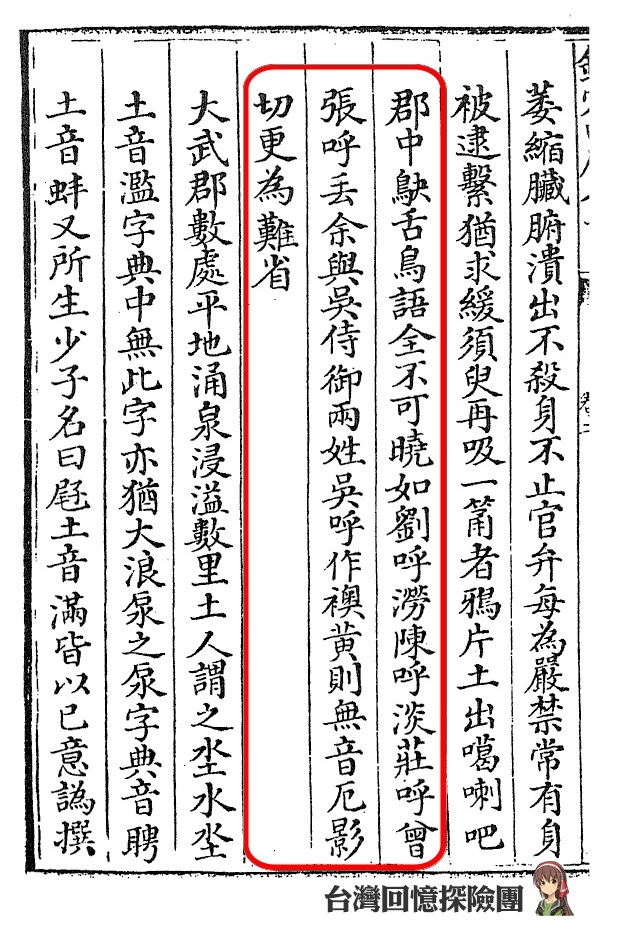 萎縮臟腑潰出不殺身不止官弁每為嚴禁常有身
被逮繫猶求緩須臾再吸一筩者鴉片土出噶喇吧
郡中鴃舌鳥語全不可曉如劉呼澇陳呼淡莊呼曾
張呼丟余與吳侍御兩姓吳呼作襖黃則無音厄影
切更為難省
大武郡數處平地涌泉浸溢數里土人謂之坔水坔
土音濫字典中無此字亦猶大浪泵之泵字典音聘
土音蚌又所生少子名曰屘土音滿皆以已意譌撰
台灣回憶探險團